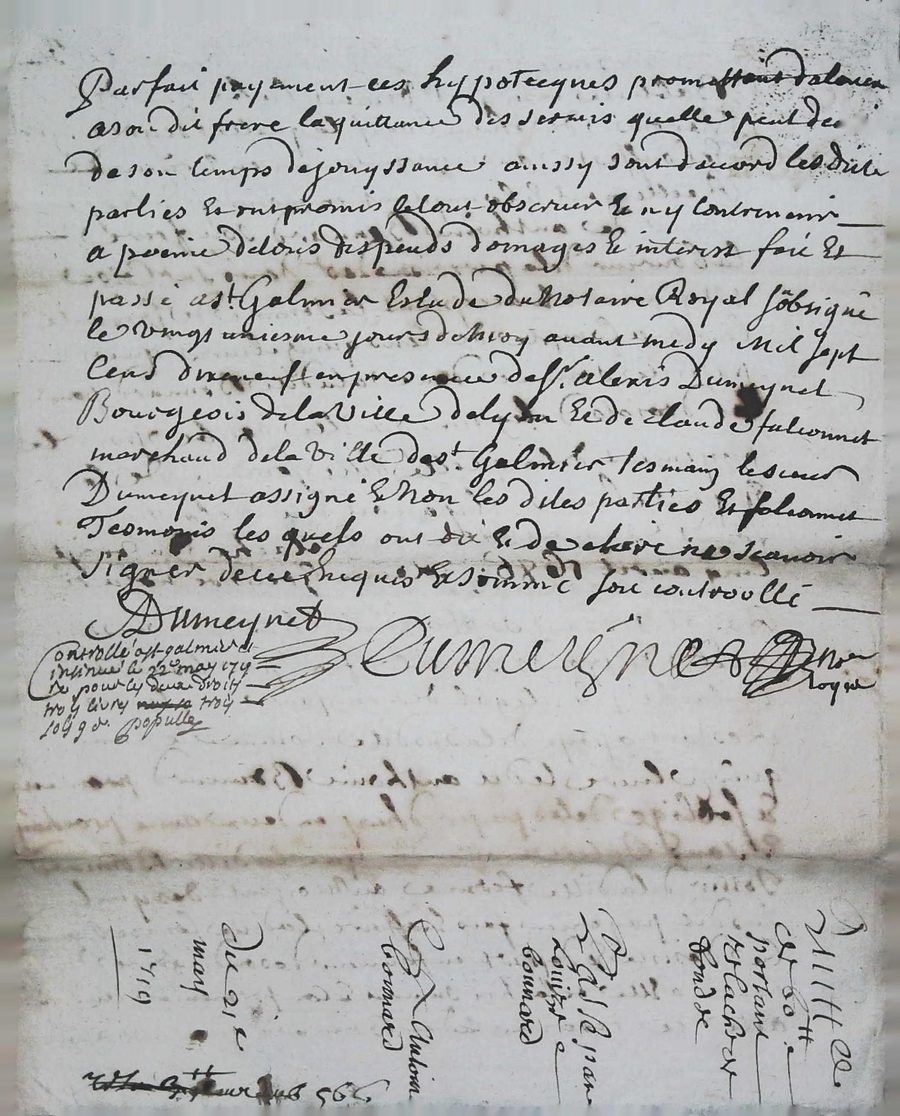 Parfait payement ces hypotecques promettant
a son dit frere la quittance des servis quelle peut
de son temps de jouyssance aussy sont daccord les dite
parties Et ont promis le tout observer Et ny contrevenir
a peine de tous despends domages Et interest fait Et
passé a st Galmier Estude du Notaire Royal sôbsigné
le vingt uniesme jours de may avant medy Mil sept
Cens dixneuf en presence de sr. alexis Dumeynet
Bourgeois de la Ville de lyon Et de claude falconnet
marchand de la Ville de st Galmier Tesmoins le sieur
Dumeynet assigné Et Non les dites parties Et falconnet
Tesmoins les quels ont dit Et declaire ne scavoir
signer de ce Enquis Et sommé soit controollé
Dumeynet
Dumeynet Nore
royal
Controllé a st galmier et
insinué le 22e may 1719
re pour les deux droits
troy livres troy
sols 9 d. populle
Quittce
de 60 tt
portant
relache de
fonds
Passé par
Louize
bonnard
A Antoine
bonnard
Du 21e
may
1719